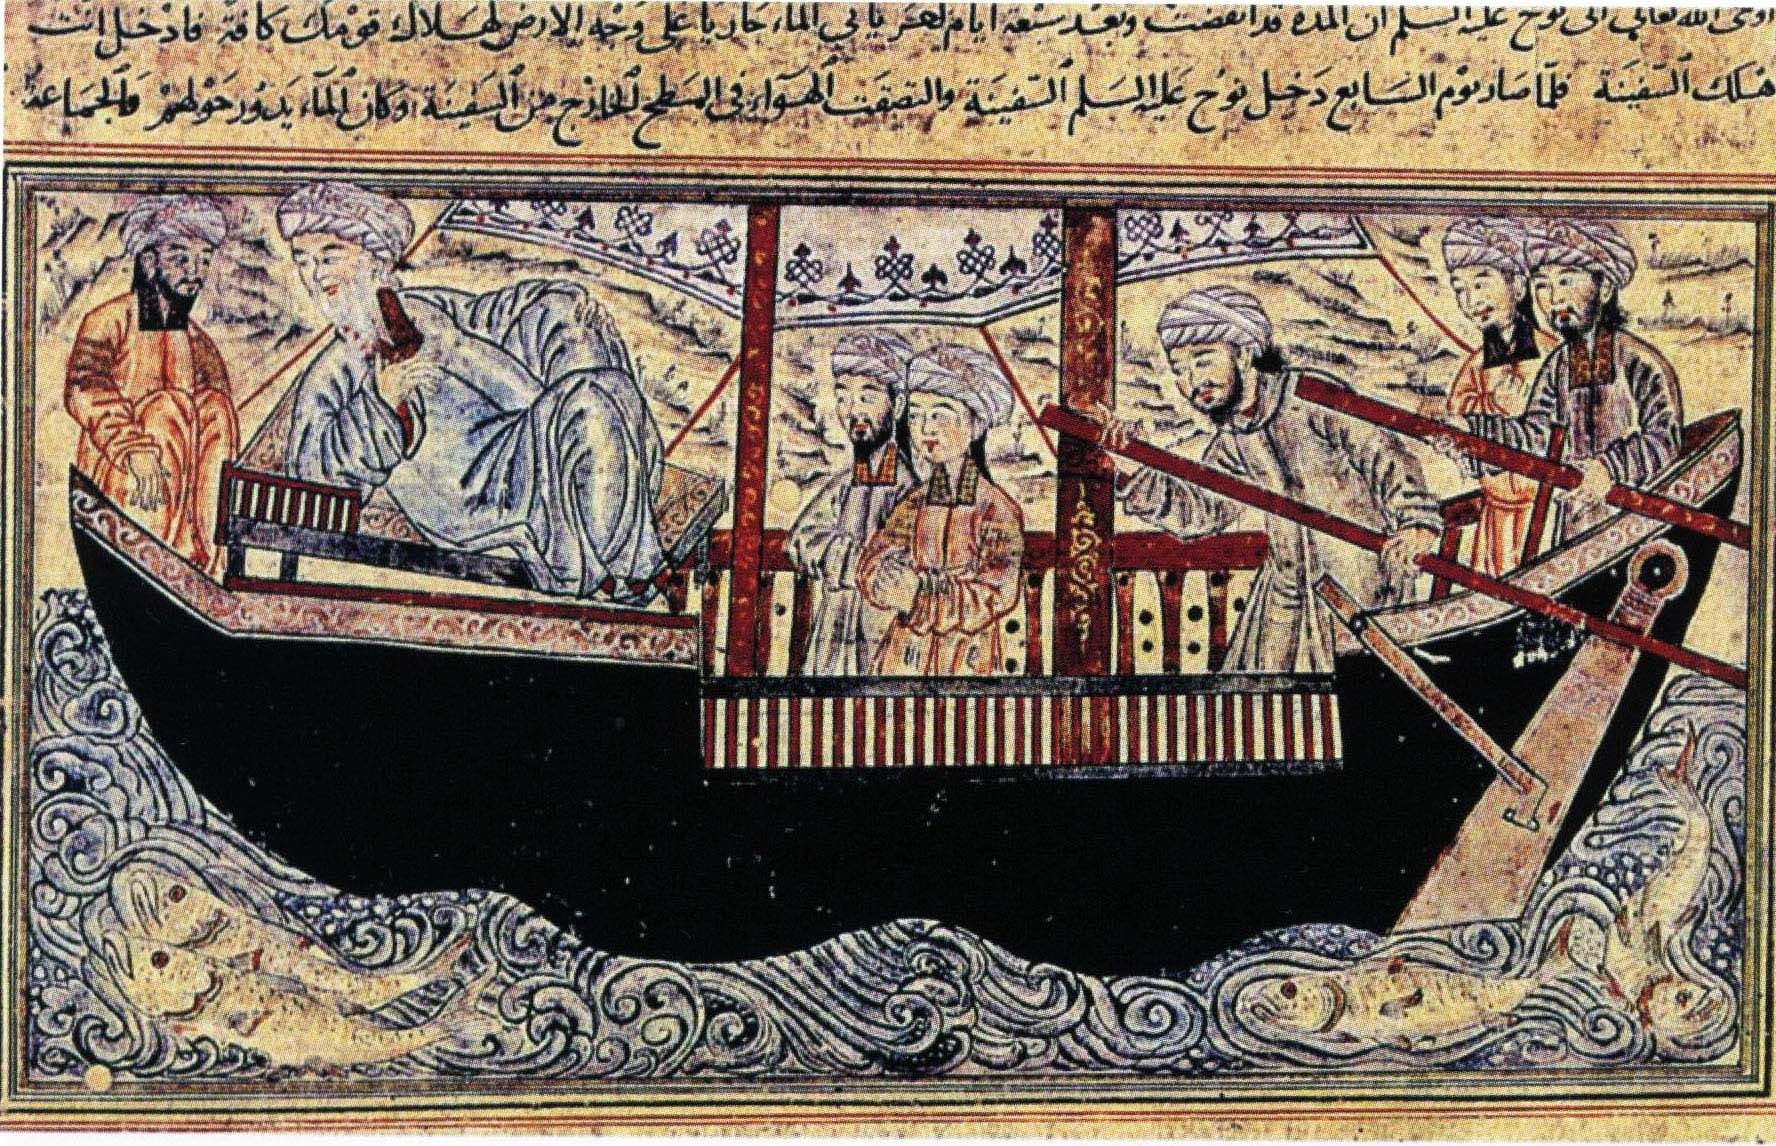 اوحى الله تعالى الى نوح عليه السلم ان المدة قد انقضت وبعد سبعة ايام لهم يأتي الماء جاريا على وجه الارض لهلاك قومك كافة فادخل انت
فلما صار يوم السابع دخل نوح عليه السلم السفينة والتصقت الهواء في السطح الخارج من السفينة وكان الماء يدور حولهم والجماعة